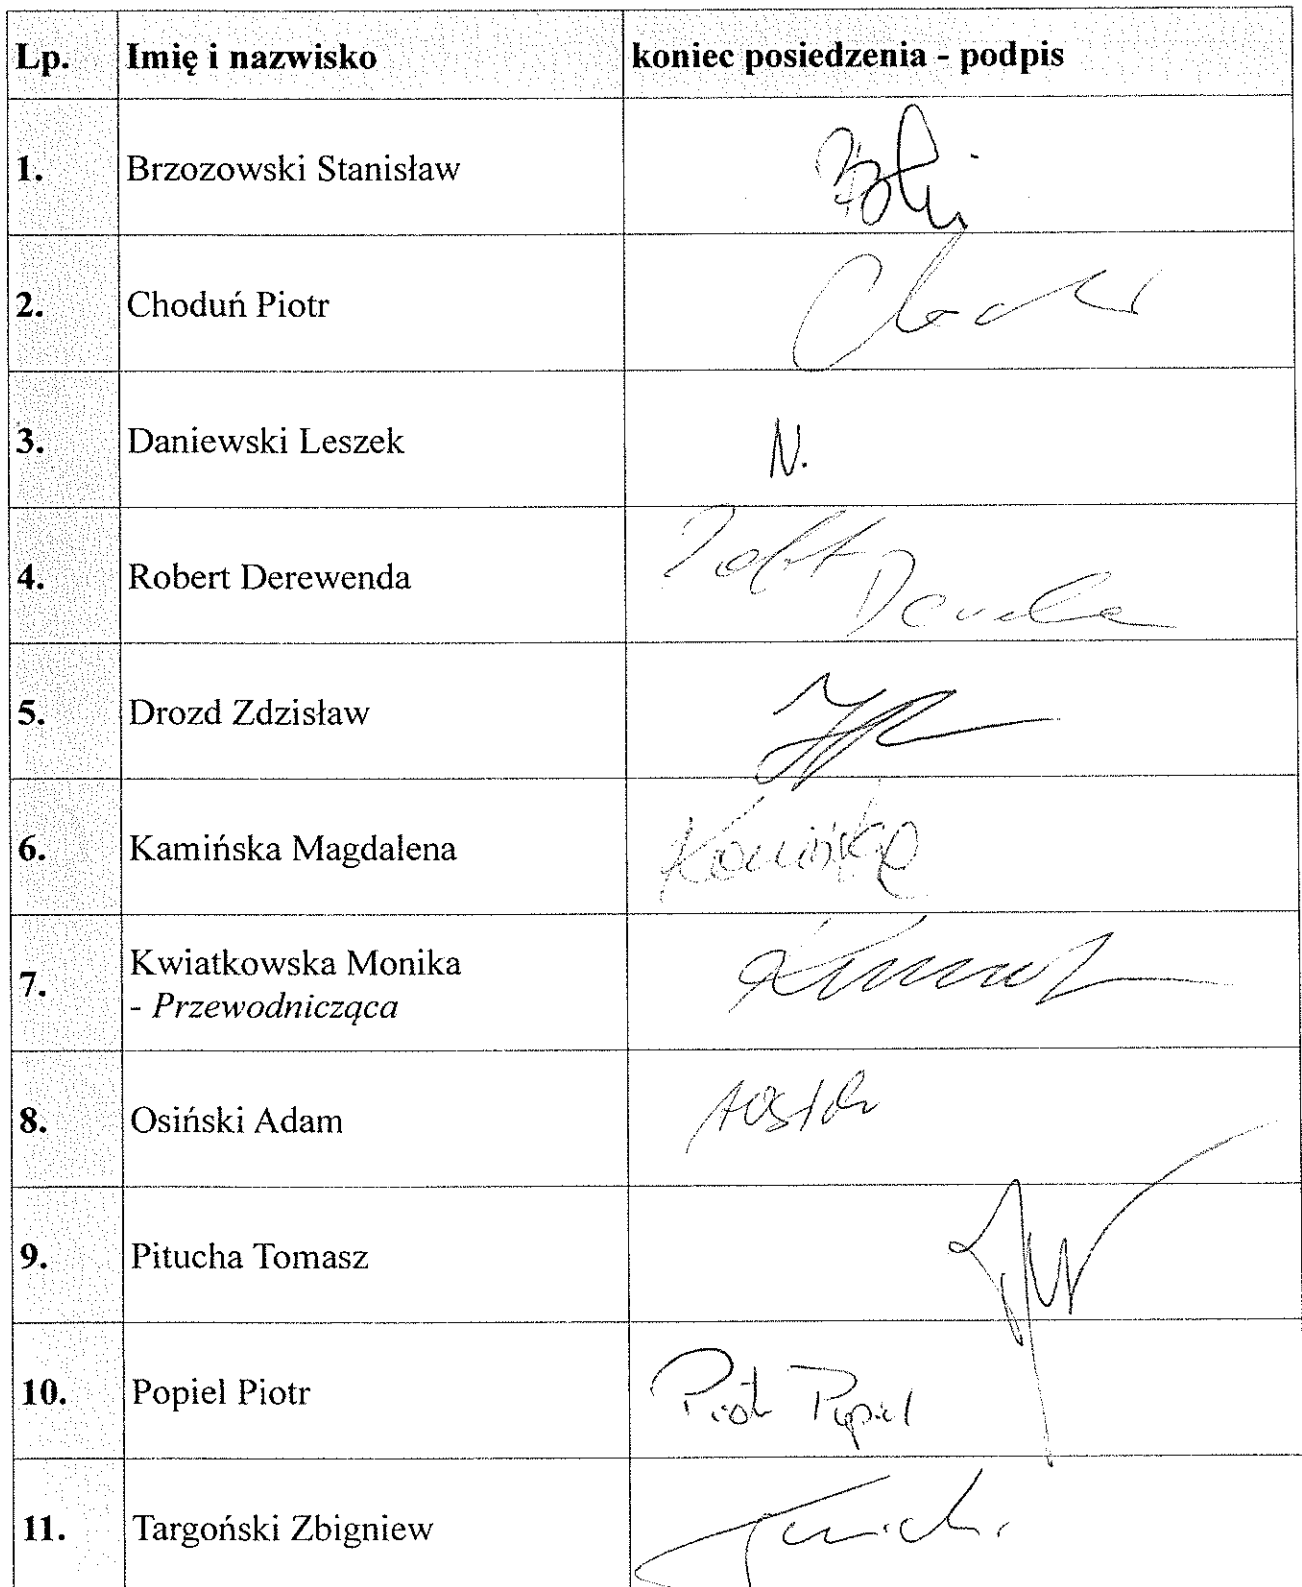 Lp. Imię i nazwisko koniec posiedzenia - podpis
1. Brzozowski Stanisław
2. Choduń Piotr
3. Daniewski Leszek N.
4. Robert Derewenda
5. Drozd Zdzisław
6. Kamińska Magdalena
7. Kwiatkowska Monika
- Przewodnicząca
8. Osiński Adam
9. Pitucha Tomasz
10. Popiel Piotr Piotr Popiel
11. Targoński Zbigniew